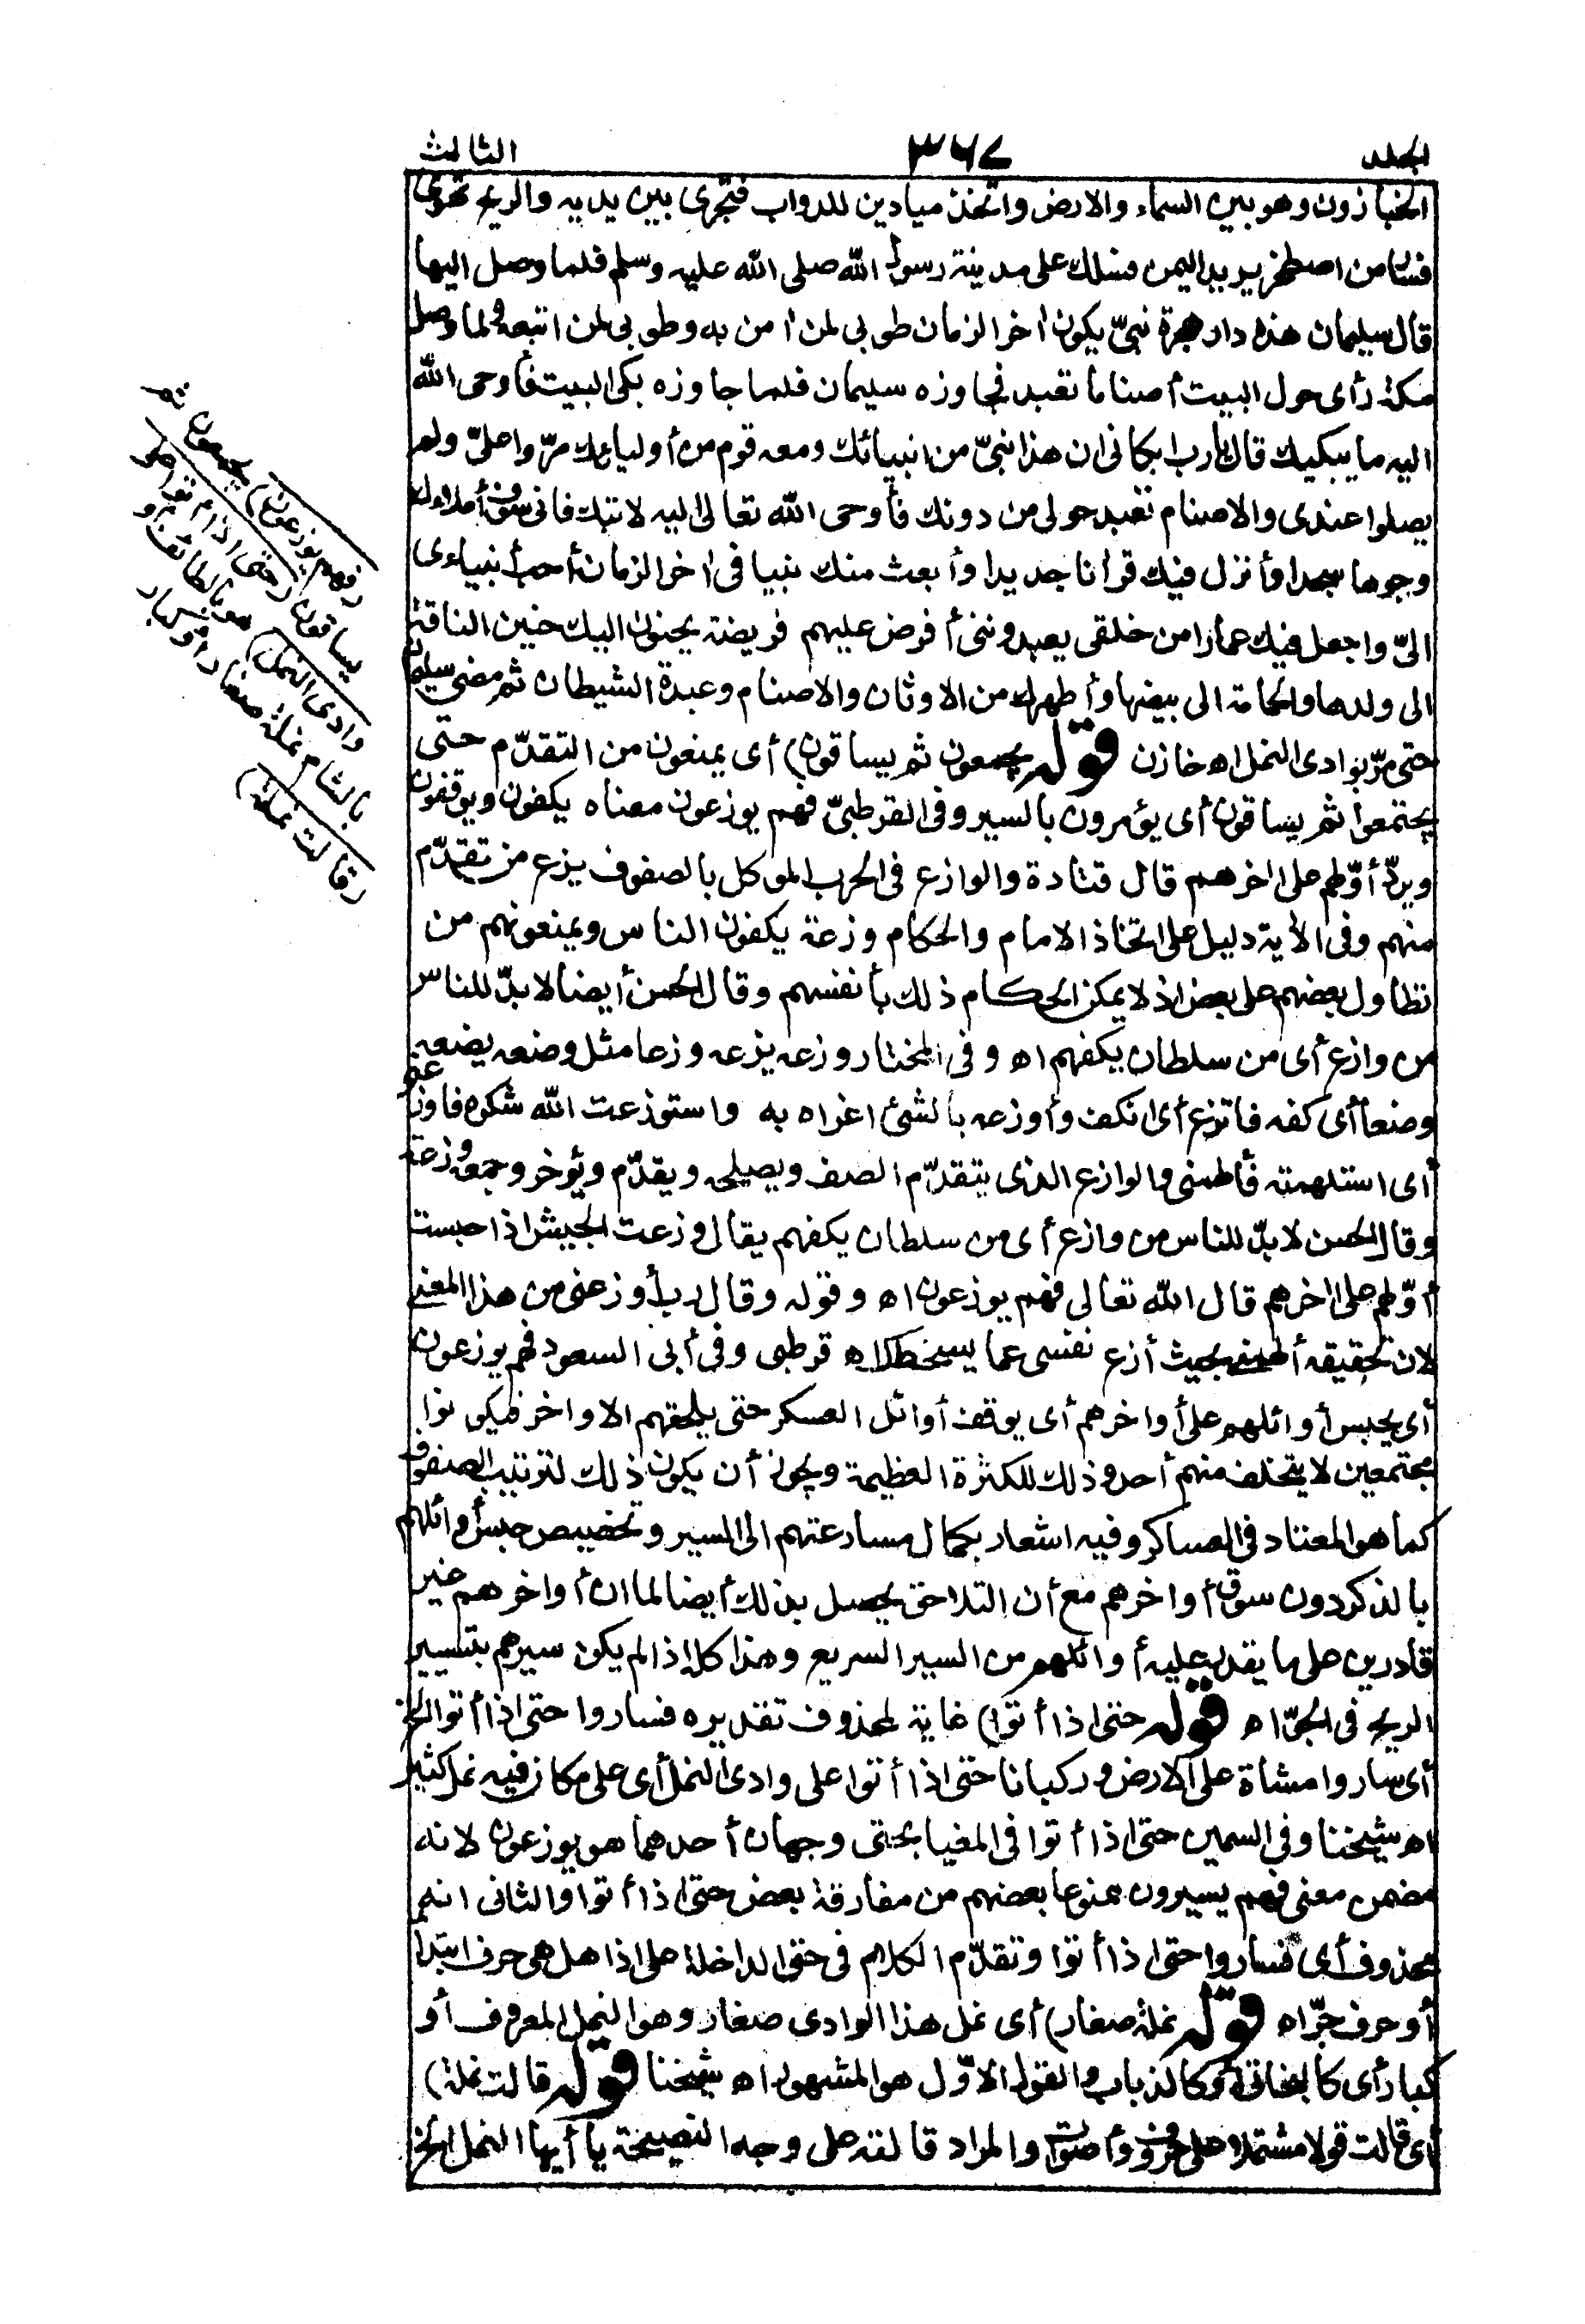 الجلد ٣٦٧ الثالث
الخبازون وهو بين السماء والارض واتخذ ميادين للدواب فتجرى بين يديه والريح تهوى
فسار من اصطخر يريد اليمن فسلك على مدينة رسول الله صلى الله عليه وسلم فلما وصل اليها
قال سليمان هذه دار هجرة نبىّ يكون اخر الزمان طوبى لمن امن به وطوبى لمن اتبعه ولما وصل
مكة رأى حول البيت أصناما تعبد فجاوزه سليمان فلما جاوزه بكى البيت فأوحى الله
اليه ما يبكيك قال يارب ابكانى ان هذا نبىّ من انبيائك ومعه قوم من أوليائك مرّوا علىّ ولم
يصلوا عندى والاصنام تعبد حولى من دونك فأوحى الله تعالى اليه لا تبك فانى سوف أملاؤك
وجوها سجدا وأنزل فيك قرانا جديدا وأبعث منك نبيا فى اخر الزمان أحب أنبياءى
الىّ واجعل فيك عمارا من خلقى يعبدوننى أفرض عليهم فريضة يحنون اليك حنين الناقة
الى ولدها والحمامة الى بيضها وأطهرك من الاوثان والاصنام وعبدة الشيطان ثم مضى سليمان
حتى مرّ بوادى النمل اه خازن قوله يجمعون ثم يساقون) أى يمنعون من التقدّم حتى
يجتمعوا ثم يساقون أى يؤمرون بالسير وفى القرطبىّ فهم يوزعون معناه يكفون ويوقفون
ويردّ أوّلهم على اخرهم قال قتادة والوازع فى الحرب الموكل بالصفوف يزع من تقدّم
منهم وفى الأية دليل على اتخاذ الامام والحكام وزعة يكفون الناس ويمنعونهم من
تطاول بعضهم على بعض اذ لا يمكن الحكام ذلك بأنفسهم وقال الحسن أيضا لابدّ للناس
من وازع أى من سلطان يكفهم اه وفى المختار وزعه يزعه وزعا مثل وضعه يضعه
وضعا أى كفه فاتزع أى انكف وأوزعه بالشئ اغراه به واستوزعت الله شكره فاوزعنى
أى استلهمته فألهمنى والوازع الذى يتقدّم الصف ويصلحه ويقدّم ويؤخر وجمعه وزعة
وقال الحسن لابدّ للناس من وازع أى من سلطان يكفهم يقال وزعت الجيش اذا حبست
أوّلهم على اخرهم قال الله تعالى فهم يوزعون اه وقوله وقال رب أوزعنى من هذا المعنى
لان تحقيقه ألهمنى بحيث أزع نفسى عما يسخطك اه قرطبى وفى أبى السعود فهم يوزعون
أى يحبس أوائلهم على أواخرهم أى يوقف أوائل العسكر حتى يلحقهم الاواخر فيكونوا
مجتمعين لا يتخلف منهم أحد وذلك للكثرة العظيمة ويجوز أن يكون ذلك لترتيب الصفوف
كما هو المعتاد فى العساكر وفيه اشعار بكمال مسارعتهم الى المسير وتخصيص حبس أوائلهم
بالذكر دون سوق أواخرهم مع أن التلاحق يحصل بذلك أيضا لما ان أواخرهم غير
قادرين على ما يقدر عليه أوائلهم من السير السريع وهذا كله اذا لم يكن سيرهم بتسيير
الريح فى الجوّ اه قوله حتى اذا أتوا) غاية لمحذوف تقديره فساروا حتى اذا أتوا الخ
أى ساروا مشاة على الارض وركبانا حتى اذا أتوا على وادى النمل أى على مكان فيه نمل كثير
اه شيخنا وفى السمين حتى اذا أتوا فى المغيا بحتى وجهان أحدهما هو يوزعون لانه
مضمن معنى فهم يسيرون ممنوعا بعضهم من مفارقة بعض حتى اذا أتوا والثانى انه
محذوف أى فساروا حتى اذا أتوا وتقدّم الكلام فى حتى الداخلة على اذا هل هى حرف ابتدا
أو حرف جرّ اه قوله نملة صغار) أى نمل هذا الوادى صغار وهو النمل المعروف أو
كبار أى كالبخاتى أو كالذباب والقول الاوّل هو المشهور اه شيخنا قوله قالت نملة)
أى قالت قولا مشتملا على حروف وأصوات والمراد قالته على وجه النصيحة يا أيها النمل الخ
(فهم يوزعون) يجمعون ثم
يساقون (حتى اذا أتوا على
وادى النمل) هو بالطائف أو
بالشام نملة صغار أو كبار
(قالت نملة)